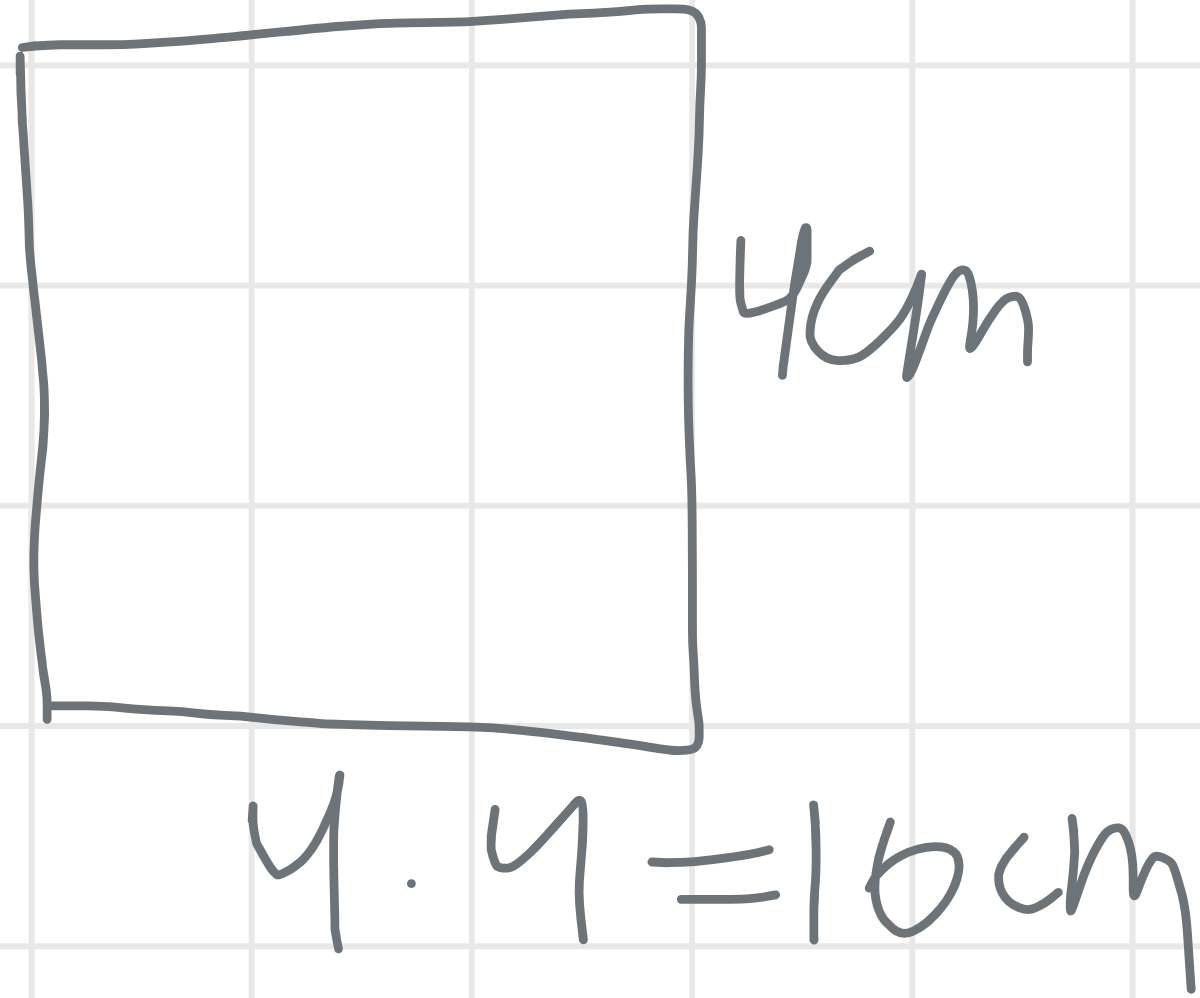 4cm
4 · 4 = 16cm